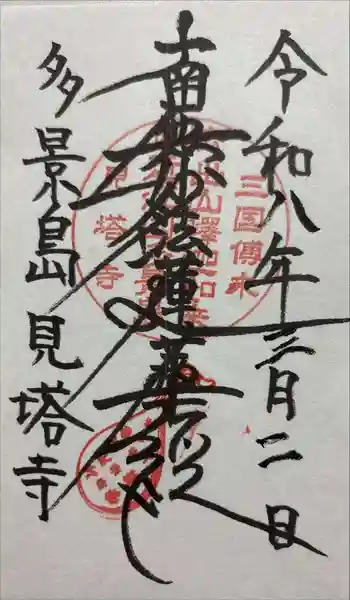 令和八年三月二日
南無妙法蓮華経
多景島 見塔寺
三国傳来
見塔寺